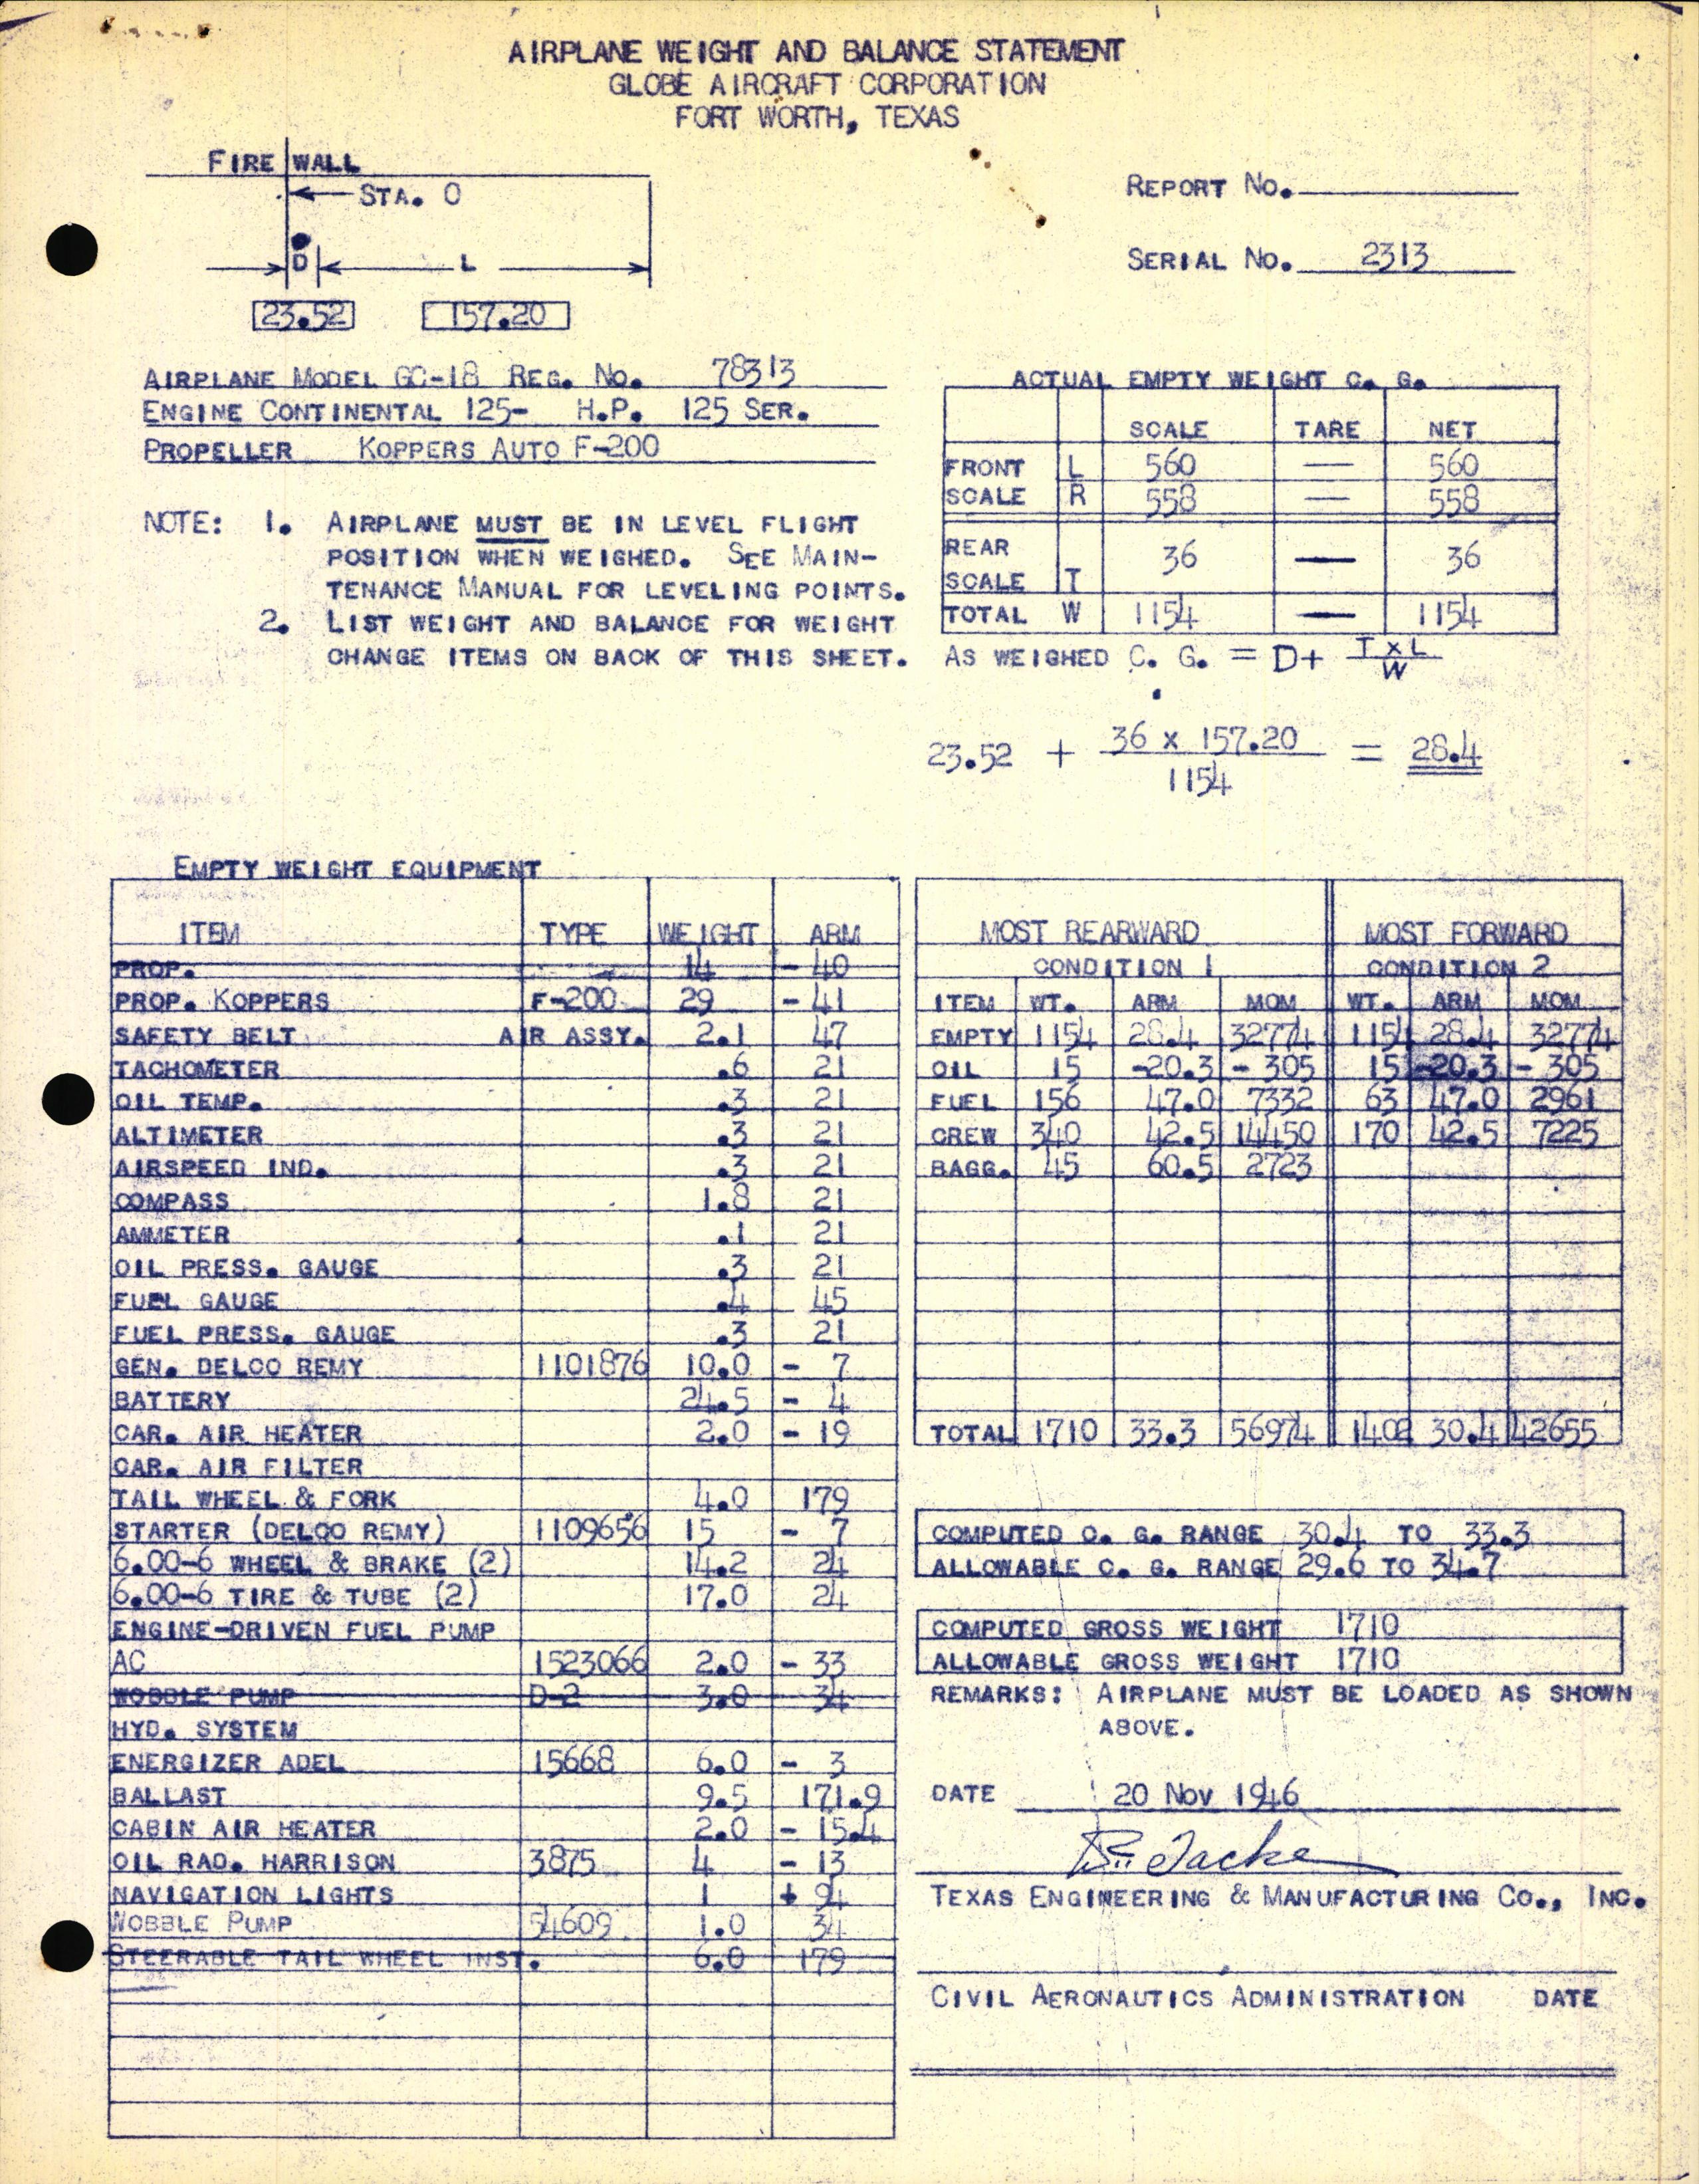 AIRPLANE WEIGHT AND BALANCE STATEMENT
GLOBE AIRCRAFT CORPORATION
FORT WORTH, TEXAS
FIRE WALL
STA. O
D L
23.52 157.20
REPORT NO.
SERIAL NO. 2313
AIRPLANE MODEL GC-1B REG. NO. 78313
ENGINE CONTINENTAL 125- H.P. 125 SER.
PROPELLER KOPPERS AUTO F-200
NOTE: 1. AIRPLANE MUST BE IN LEVEL FLIGHT
POSITION WHEN WEIGHED. SEE MAIN-
TENANCE MANUAL FOR LEVELING POINTS.
2. LIST WEIGHT AND BALANCE FOR WEIGHT
CHANGE ITEMS ON BACK OF THIS SHEET.
ACTUAL EMPTY WEIGHT C. G.
SCALE TARE NET
FRONT L 560 — 560
SCALE R 558 — 558
REAR
SCALE T 36 — 36
TOTAL W 1154 — 1154
AS WEIGHED C. G. = D+ T x L
W
23.52 + 36 x 157.20 = 28.4
1154
EMPTY WEIGHT EQUIPMENT
ITEM TYPE WEIGHT ARM
PROP. 14 - 40
PROP. KOPPERS F-200 29 - 41
SAFETY BELT AIR ASSY. 2.1 47
TACHOMETER .6 21
OIL TEMP. .3 21
ALTIMETER .3 21
AIRSPEED IND. .3 21
COMPASS 1.8 21
AMMETER .1 21
OIL PRESS. GAUGE .3 21
FUEL GAUGE .4 45
FUEL PRESS. GAUGE .3 21
GEN. DELCO REMY 1101876 10.0 - 7
BATTERY 24.5 - 4
CAR. AIR HEATER 2.0 - 19
CAR. AIR FILTER
TAIL WHEEL & FORK 4.0 179
STARTER (DELCO REMY) 1109656 15 - 7
6.00-6 WHEEL & BRAKE (2) 14.2 24
6.00-6 TIRE & TUBE (2) 17.0 24
ENGINE-DRIVEN FUEL PUMP
AC 1523066 2.0 - 33
WOBBLE PUMP D-2 3.0 34
HYD. SYSTEM
ENERGIZER ADEL 15668 6.0 - 3
BALLAST 9.5 171.9
CABIN AIR HEATER 2.0 - 15.4
OIL RAD. HARRISON 3875 4 - 13
NAVIGATION LIGHTS 1 + 94
WOBBLE PUMP 54609 1.0 34
STEERABLE TAIL WHEEL INST. 6.0 179
MOST REARWARD MOST FORWARD
CONDITION 1 CONDITION 2
ITEM WT. ARM MOM WT. ARM MOM
EMPTY 1154 28.4 32774 1154 28.4 32774
OIL 15 -20.3 - 305 15 -20.3 - 305
FUEL 156 47.0 7332 63 47.0 2961
CREW 340 42.5 14450 170 42.5 7225
BAGG. 45 60.5 2723
TOTAL 1710 33.3 56974 1402 30.4 42655
COMPUTED C. G. RANGE 30.4 TO 33.3
ALLOWABLE C. G. RANGE 29.6 TO 34.7
COMPUTED GROSS WEIGHT 1710
ALLOWABLE GROSS WEIGHT 1710
REMARKS: AIRPLANE MUST BE LOADED AS SHOWN
ABOVE.
DATE 20 NOV 1946
TEXAS ENGINEERING & MANUFACTURING CO., INC.
CIVIL AERONAUTICS ADMINISTRATION DATE